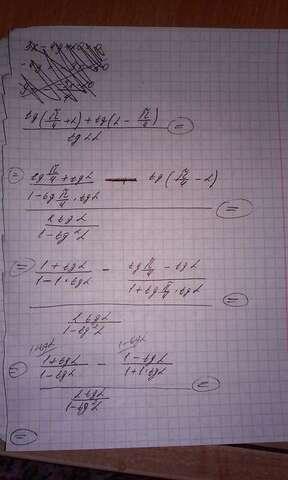 tg(π/4+α)+tg(α-π/4)
tg2α
=
= tgπ/4+tgα
1-tgπ/4·tgα
- tg(π/4-α)
2tgα
1-tg²α
=
= 1+tgα
1-1·tgα
- tgπ/4-tgα
1+tgπ/4·tgα
2tgα
1-tg²α
=
1+tgα 1-tgα
= 1+tgα
1-tgα
- 1-tgα
1+1·tgα
2tgα
1-tg²α
=
=